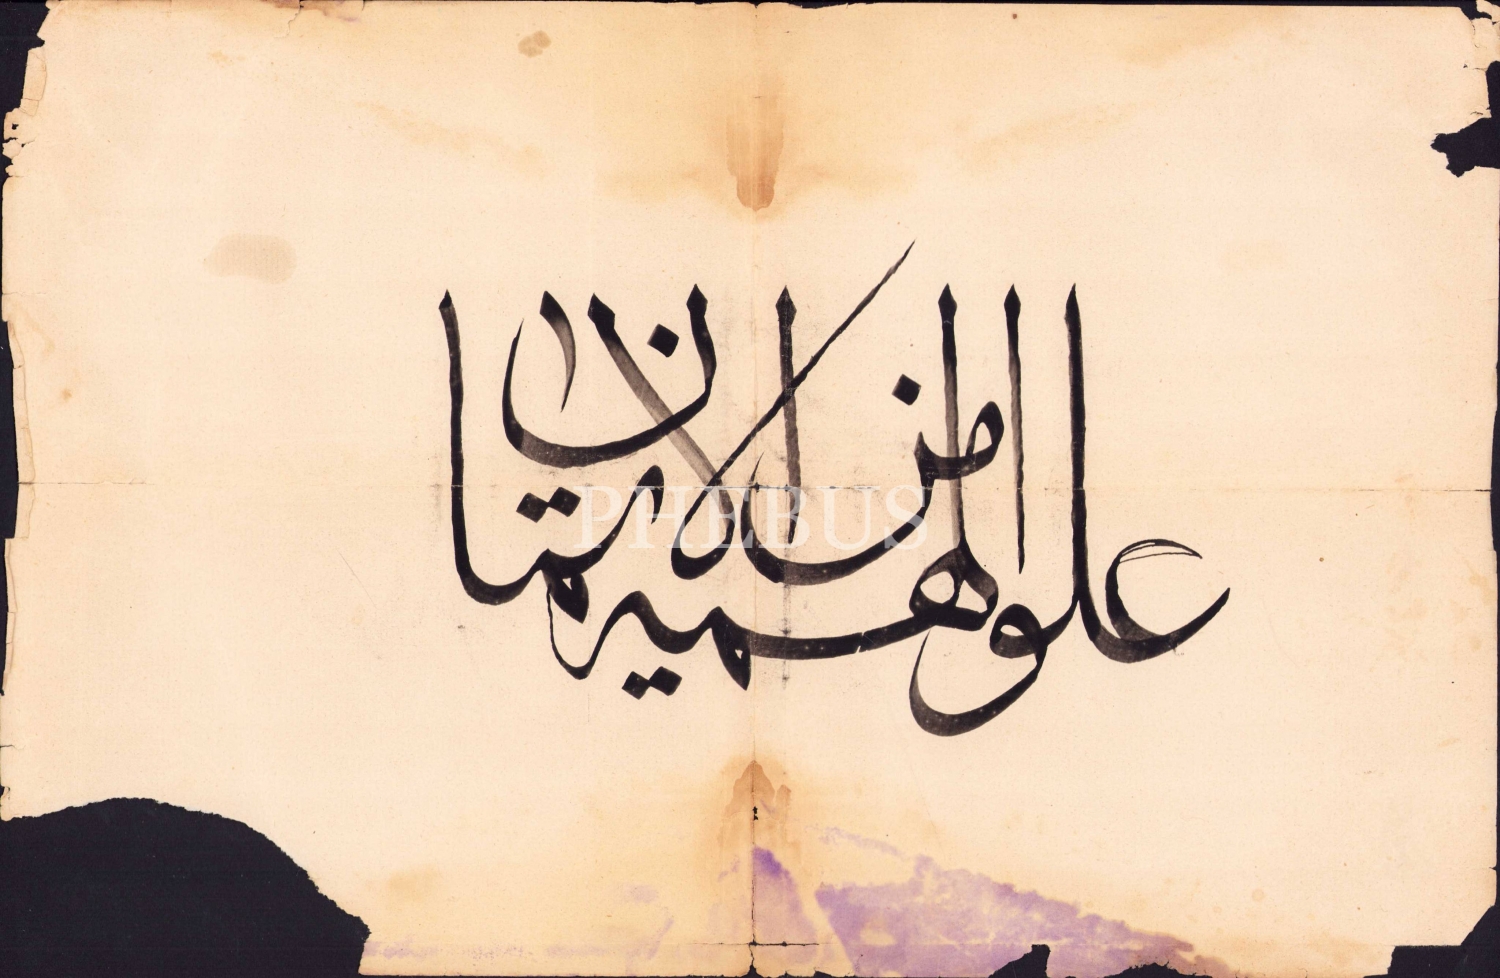 علو الهمة من الایمان
PHEBUS